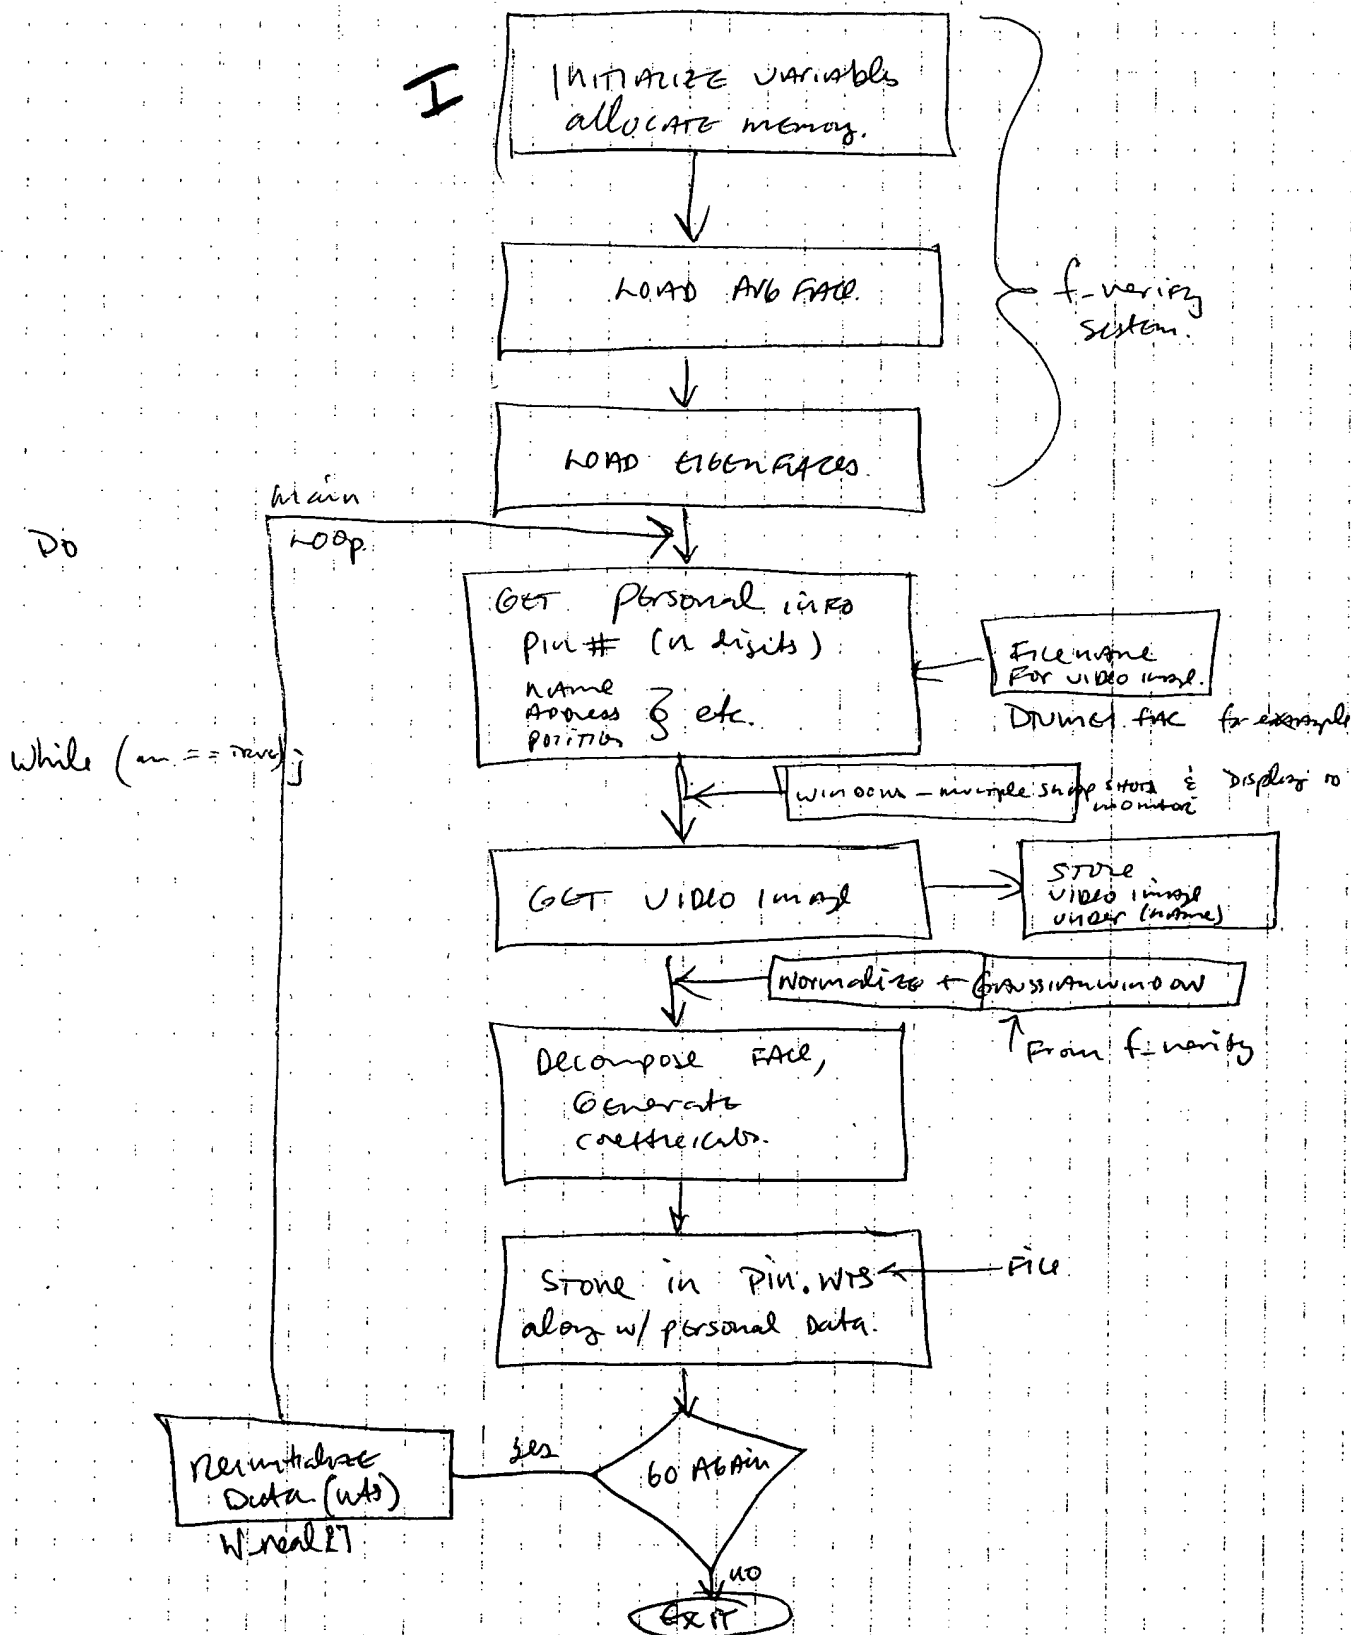 I
INITIALIZE VARIABLES
ALLOCATE MEMORY.
LOAD AVG FACE.
f_verify
system.
LOAD EIGENFACES.
Main
Loop.
Do
GET Personal INFO
Pin # (n digits)
NAME
ADDRESS
POSITION
etc.
FILENAME
FOR VIDEO IMAGE.
.FAC for example
While ( == TRUE);
WINDOWS - multiple snap shots & Display to
monitor
GET VIDEO IMAGE
STORE
VIDEO IMAGE
UNDER (NAME)
Normalize + GAUSSIAN WINDOW
From f_verify
Decompose FACE,
Generate
coefficients.
STORE in Pin.WTS
FILE
along w/ personal Data.
GO AGAIN
yes
Reinitialize
Data (wts)
W_real[]
no
EXIT